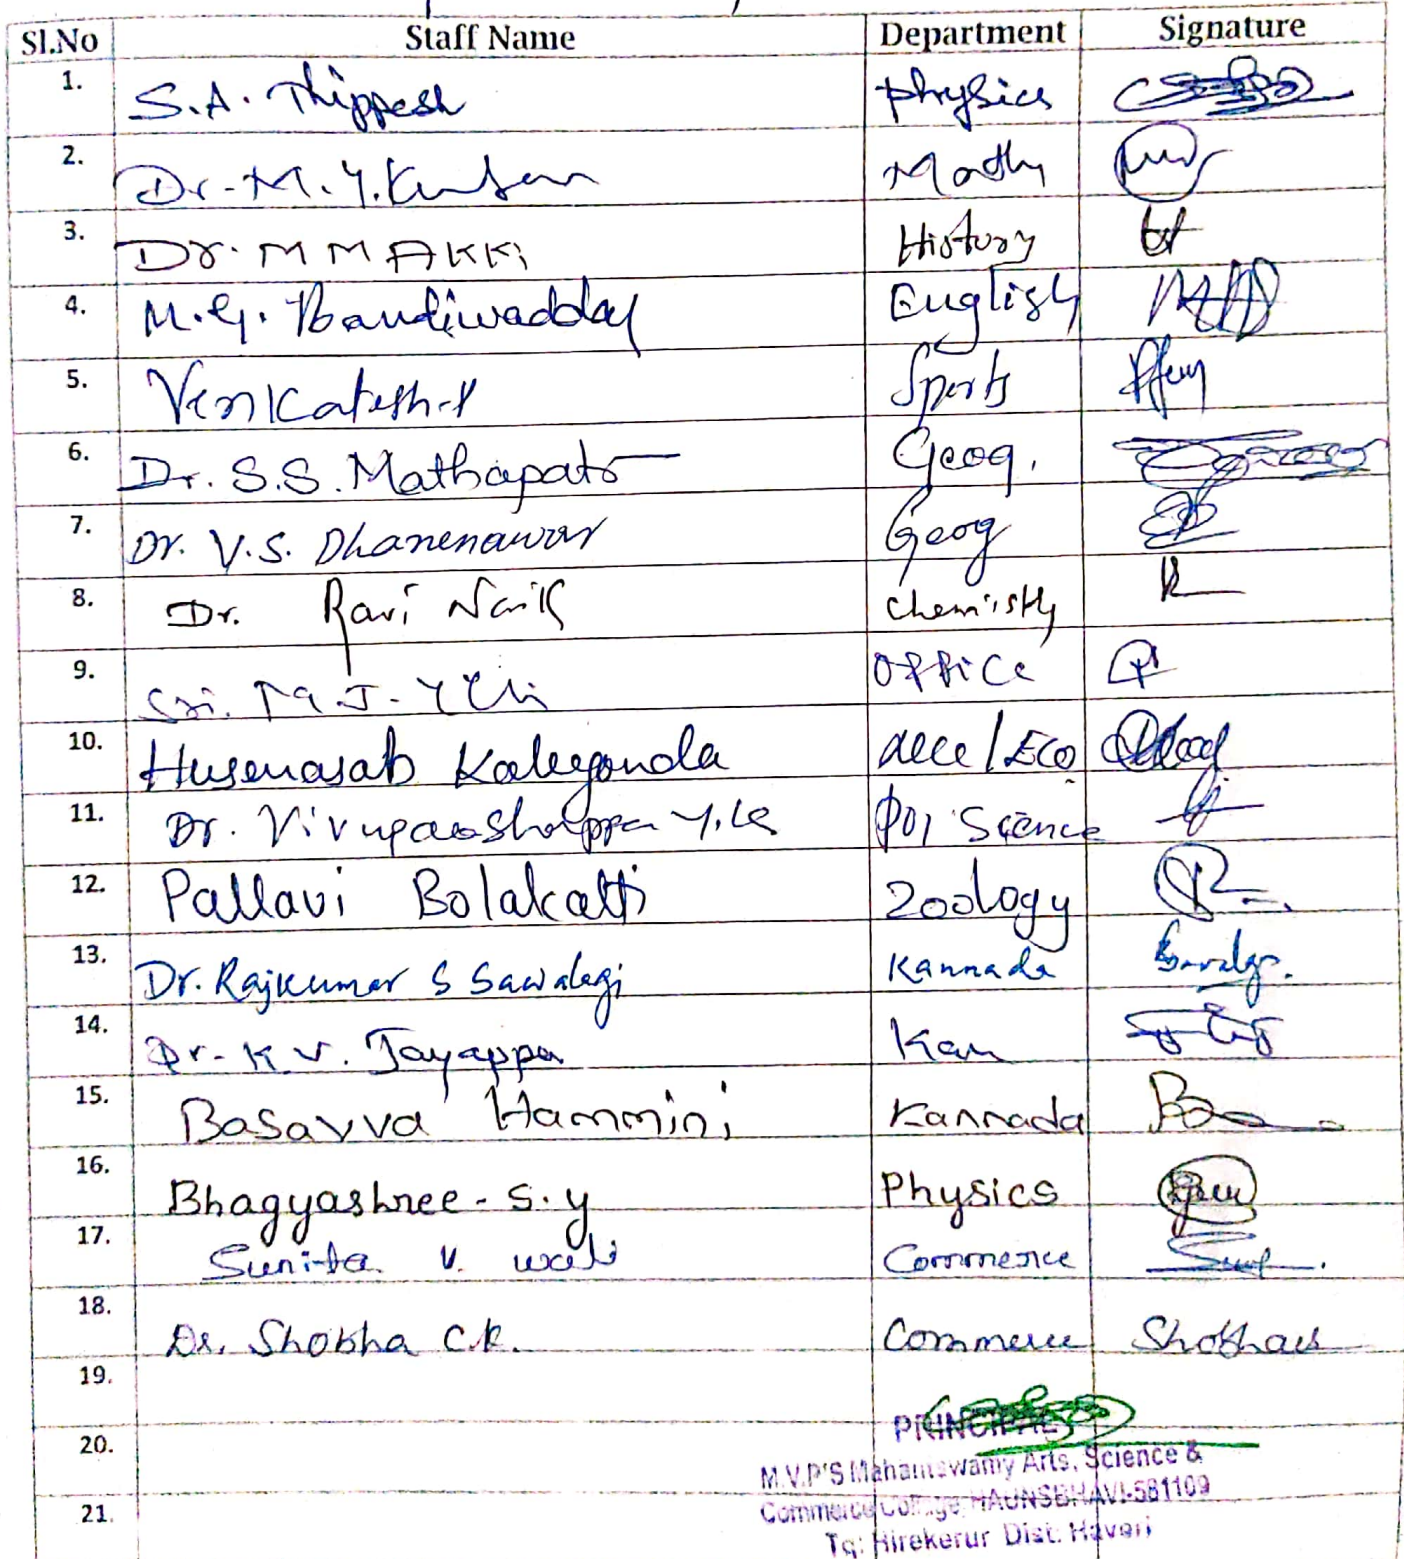 Sl.No Staff Name Department Signature
1. S.A. Thippesh Physics
2. Dr. M.Y. Maths
3. Dr. M M AKKi History
4. M.G. Bandiwaddar English
5. Venkatesh Sports
6. Dr. S.S. Mathapati Geog.
7. Dr. V.S. Dhanenawar Geog
8. Dr. Ravi Naik Chemistry
9. Sri. M.J. Office
10. Husenasab /Eco
11. Dr. Virupaakshappa Y.K Pol Science
12. Pallavi Bolakatti Zoology
13. Dr. Rajkumar S Sawalagi Kannada
14. Dr. K V. Jayappa Kan
15. Basavva Hammini Kannada
16. Bhagyashree - S. y Physics
17. Sunita V. wali Commerce
18. Dr. Shobha C.k. Commerce Shobhack
19.
PRINCIPAL
20.
M.V.P'S Mahantswamy Arts, Science &
Commerce College, HAUNSBHAVI-581109
21.
Tq: Hirekerur Dist: Haveri